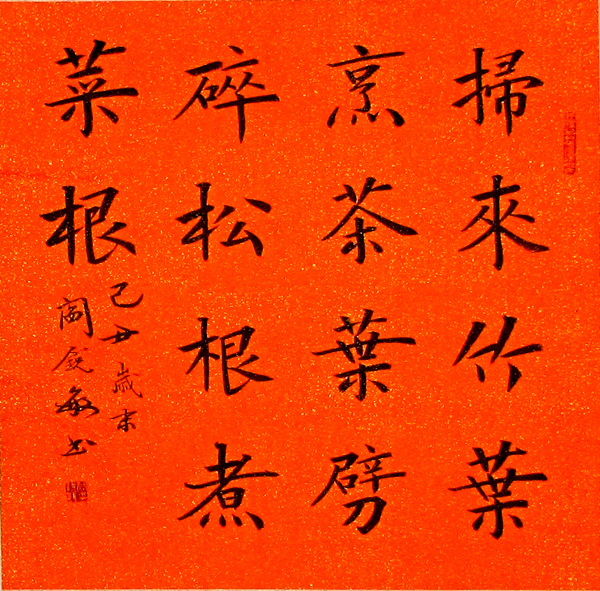 掃來竹葉
烹茶葉劈
碎松根煮
菜根
己丑歲末
閻銳敏书